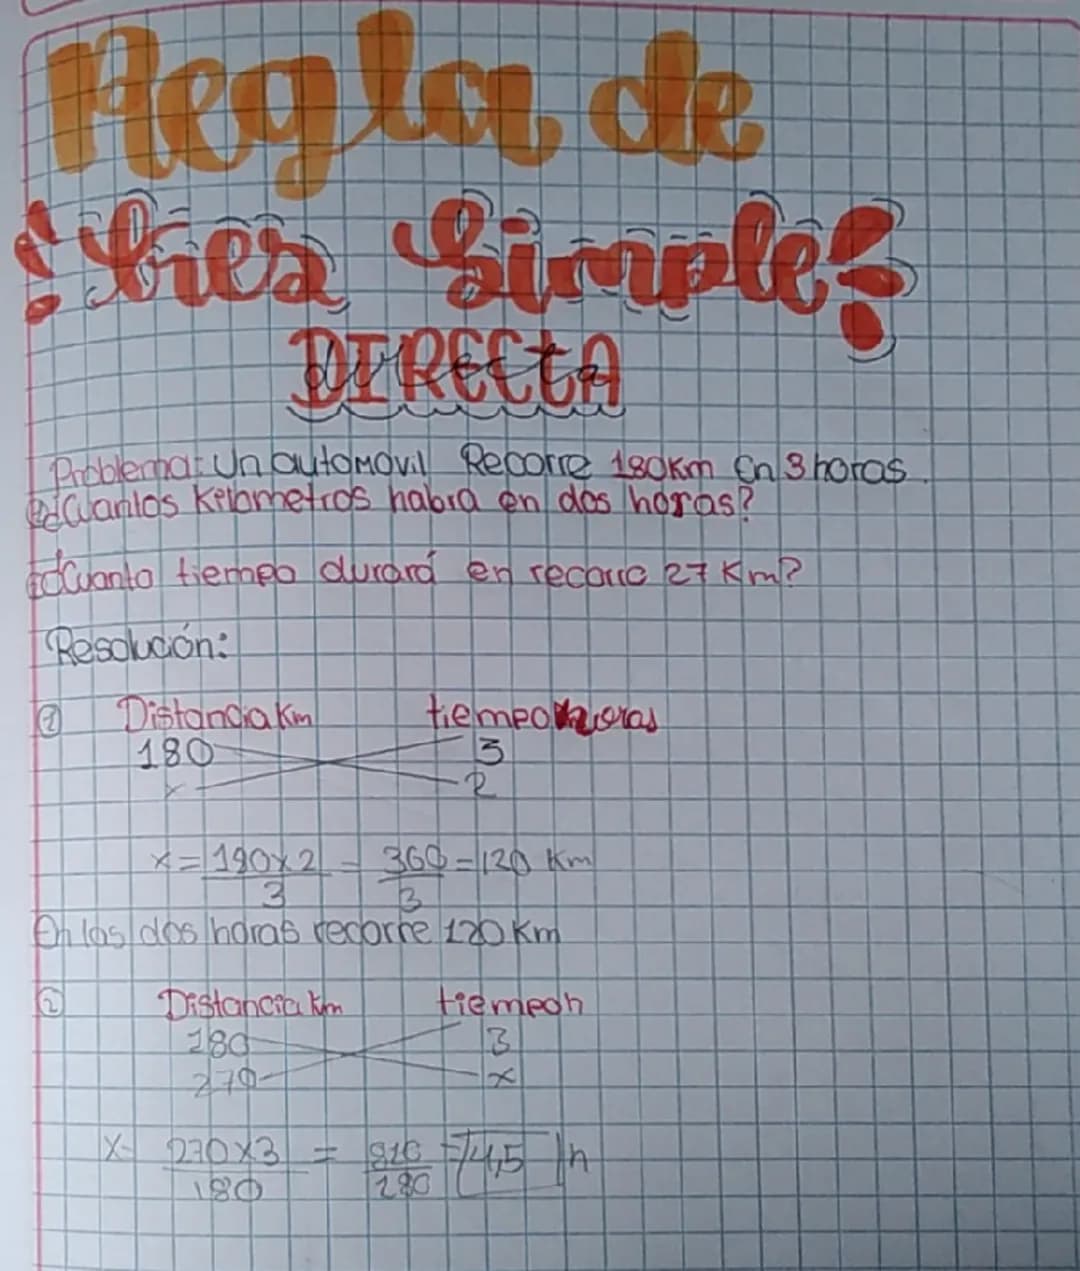 Regla de
¡tres Simple!
DIRECtA
Problema: Un automovil Recorre 180Km En 3 horas.
¿Cuantos Kilometros habra en dos horas?
¿Cuanto tiempo durará en recorre 27 Km?
Resolución:
① Distancia Km tiempo horas
180 3
x 2
x = 180x2 = 360 = 120 Km
3 3
En las dos horas recorre 120 Km
② Distancia Km tiempo h
180 3
270 x
x= 270x3 = 810 = 4,5 h
180 180